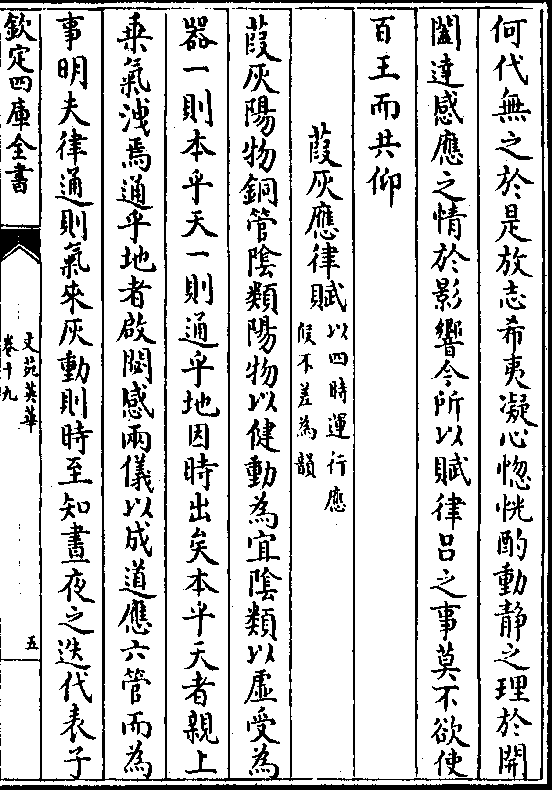 何代無之於是放志希夷凝心惚恍酌動靜之理於開
闔達感應之情於影響今所以賦律呂之事莫不欲使
百王而共仰
葭灰應律賦以四時運行應
候不差為韻
葭灰陽物銅管陰類陽物以健動為宜陰類以虛受為
器一則本乎天一則通乎地因時出矣本乎天者親上
乗氣洩焉通乎地者啟閟感兩儀以成道應六管而為
事明夫律通則氣來灰動則時至知晝夜之迭代表子
欽定四庫全書
文苑英華
卷十九
五